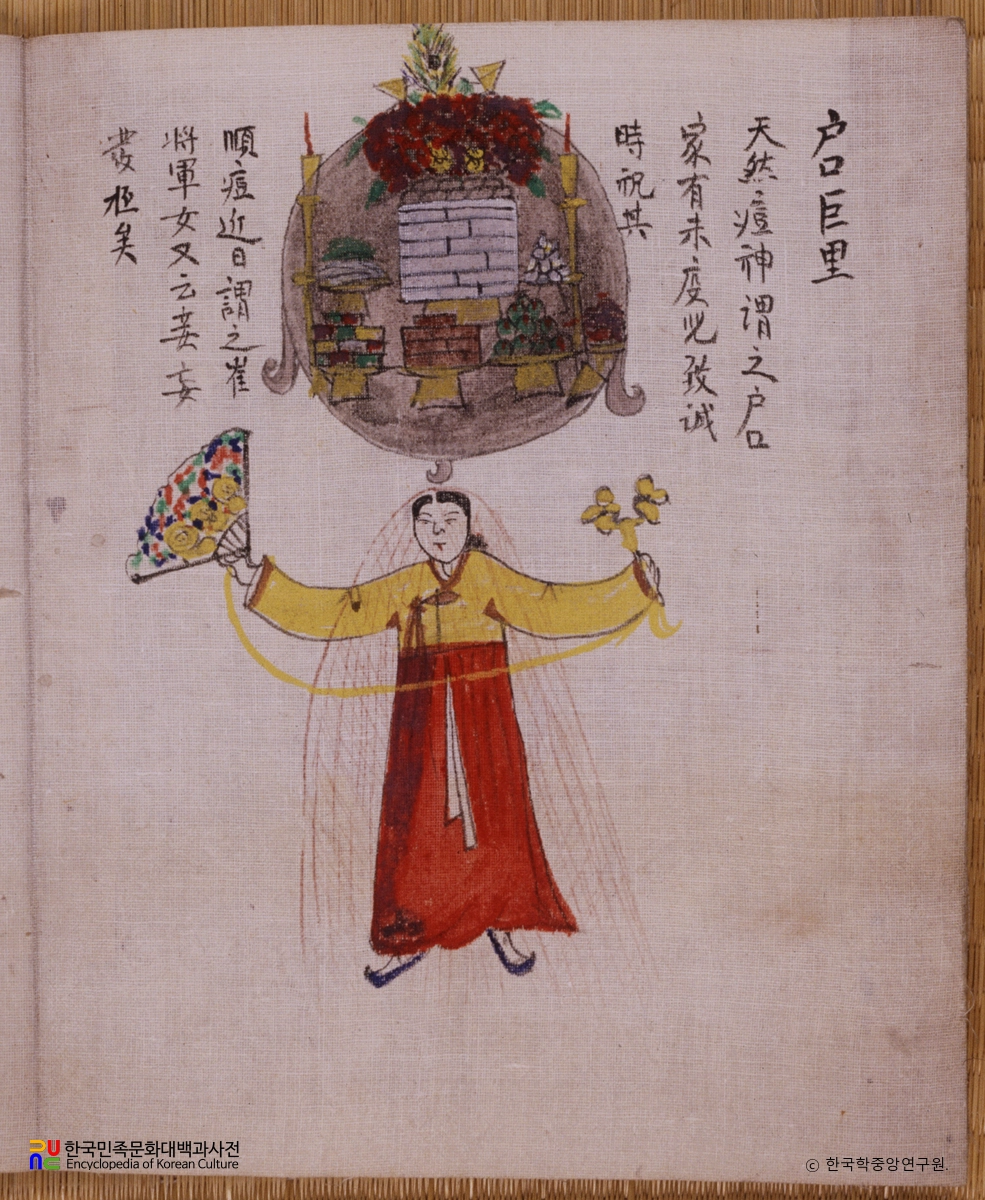 户口巨里
天然痘神谓之户口
家有未度必致誠
時祝其
順痘近日謂之崔
将軍女又云妾妄
發極矣
한국민족문화대백과사전
Encyclopedia of Korean Culture
© 한국학중앙연구원.